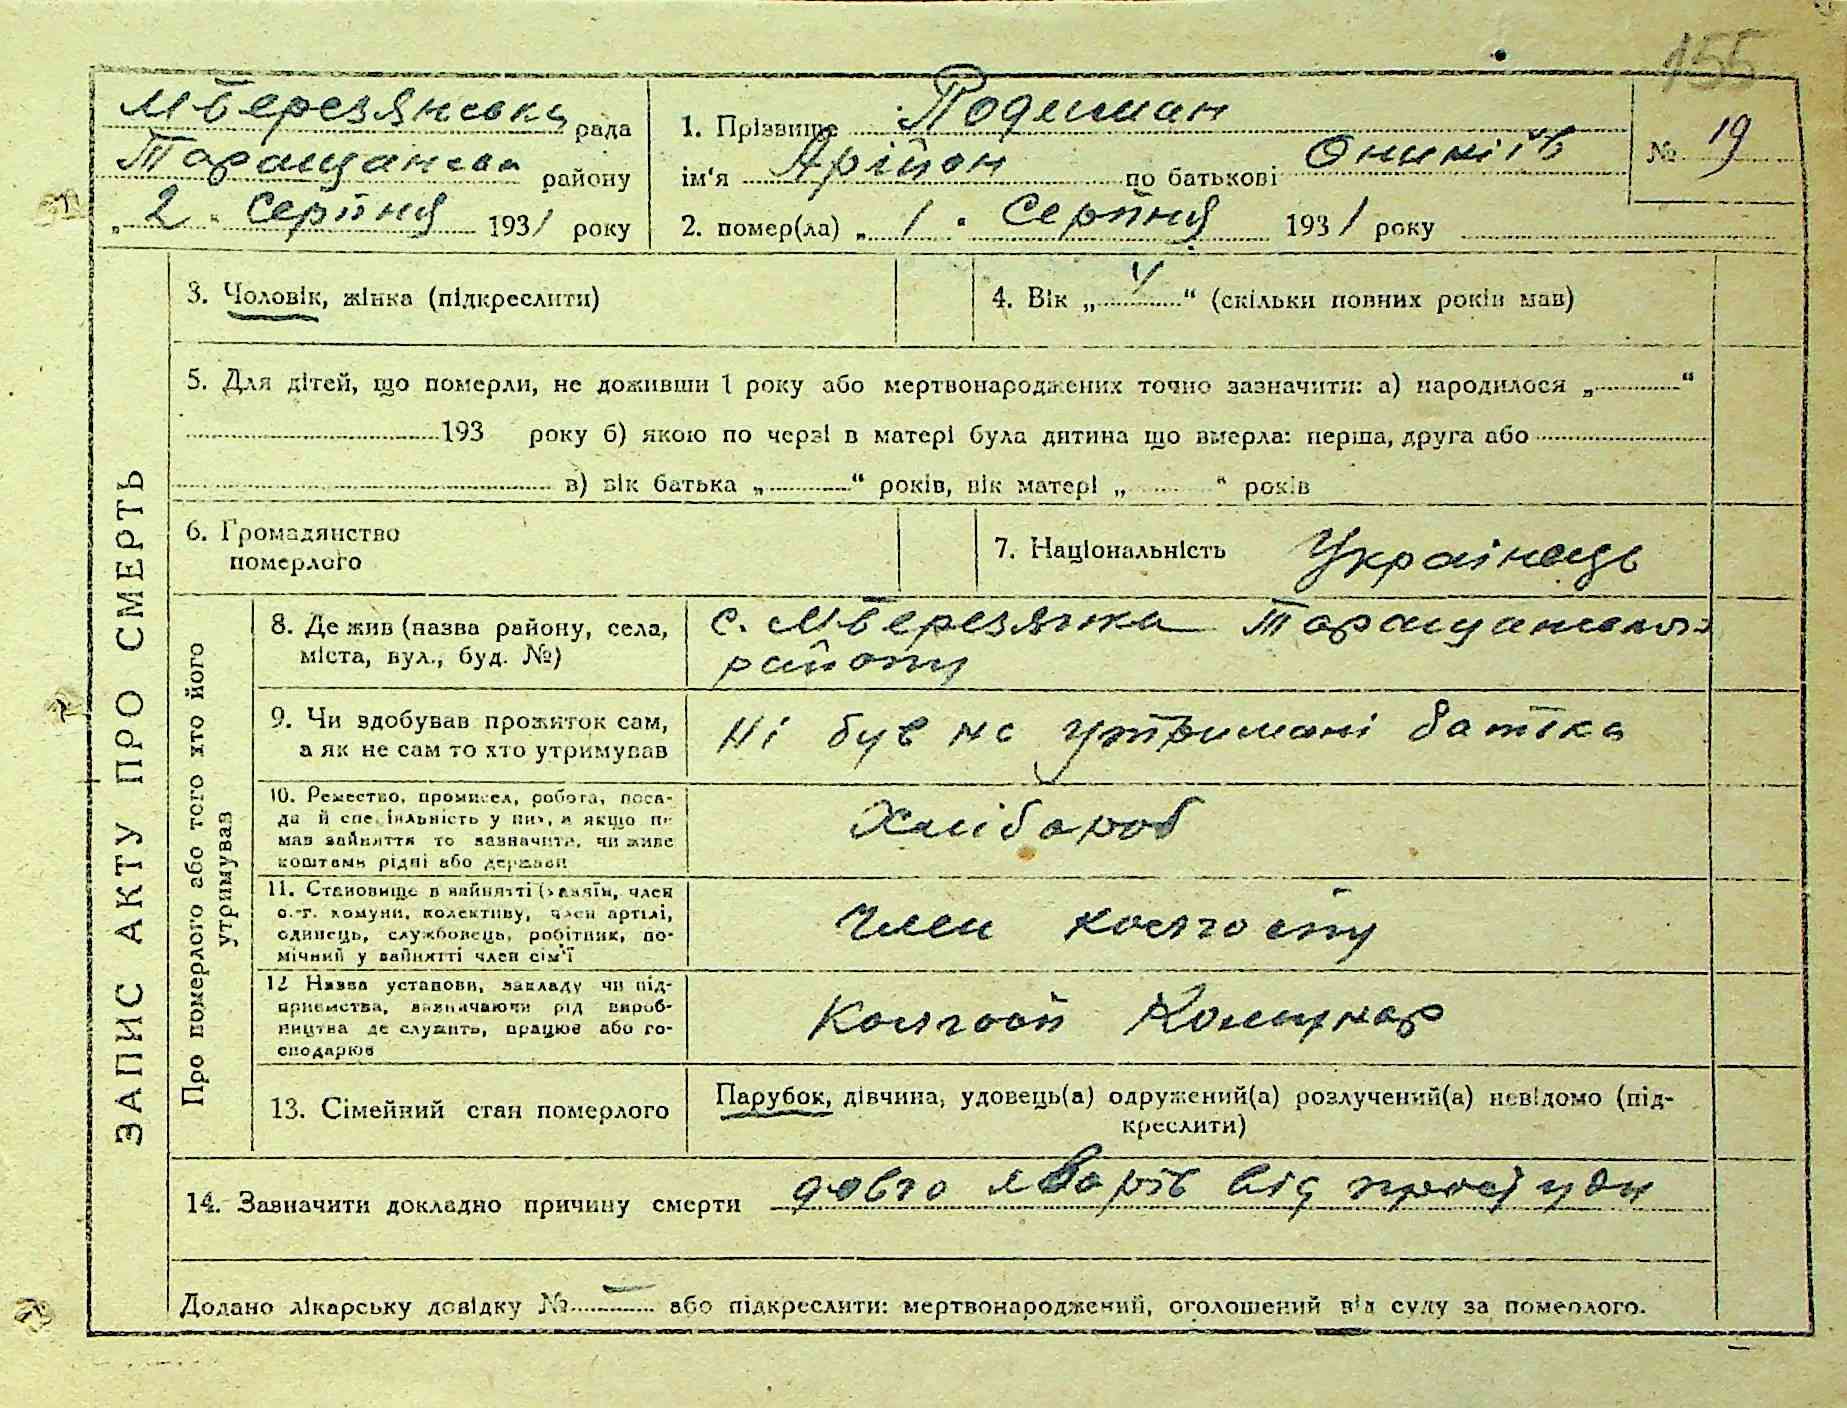 155
М Березянська рада
Таращанськ району
„ 2 . Серпня 1931 року
1. Прізвище
ім'я Арійон по батькові
2. помер(ла) „ 1 . Серпня 1931 року
№ 19
ЗАПИС АКТУ ПРО СМЕРТЬ
3. Чоловік, жінка (підкреслити)
4. Вік „ “ (скільки повних років мав)
5. Для дітей, що померли, не доживши 1 року або мертвонароджених точно зазначити: а) народилося „ “
193 року б) якою по черзі в матері була дитина що вмерла: перша, друга або
в) вік батька „ “ років, вік матері „ “ років
6. Громадянство
померлого
7. Національність Українець
Про померлого або того хто його
утримував
8. Де жив (назва району, села,
міста, вул., буд. №)
с. М Березянка Таращанського
району
9. Чи здобував прожиток сам,
а як не сам то хто утримував
Ні був на утримані батька
10. Ремество, промисел, робота, поса-
да й спеціяльність у них, а якщо не
мав зайняття то зазначити, чи живе
коштами рідні або держави
Хлібороб
11. Становище в зайнятті (хазяїн, член
с.-г. комуни, колективу, член артілі,
одинець, службовець, робітник, по-
мічний у зайнятті член сім'ї
Член колгоспу
12 Назва установи, закладу чи під-
приємства, визначаючи рід вироб-
ництва де служить, працює або го-
сподарює
Колгосп Комунар
13. Сімейний стан померлого
Парубок, дівчина, удовець(а) одружений(а) розлучений(а) невідомо (під-
креслити)
14. Зазначити докладно причину смерти довго хворів від простуди
Додано лікарську довідку № — або підкреслити: мертвонароджений, оголошений від суду за померлого.